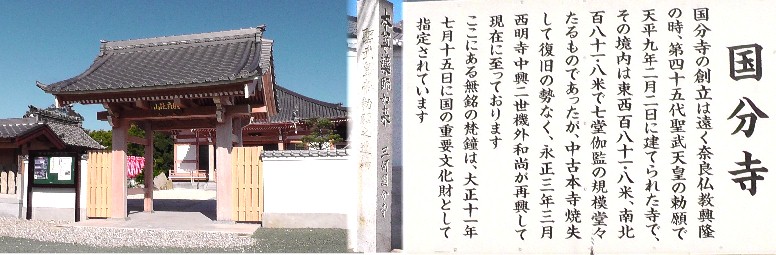 国分寺
国分寺の創立は遠く奈良仏教興隆
の時、第四十五代聖武天皇の勅願で
天平九年二月二日に建てられた寺で、
その境内は東西百八十一・八米、南北
百八十一・八米で七堂伽監の規模堂々
たるものであったが、中古本寺焼失
して復旧の勢なく、永正三年三月
西明寺中興二世機外和尚が再興して
現在に至っております
ここにある無銘の梵鐘は、大正十一年
七月十五日に国の重要文化財として
指定されています
本尊薬師如来